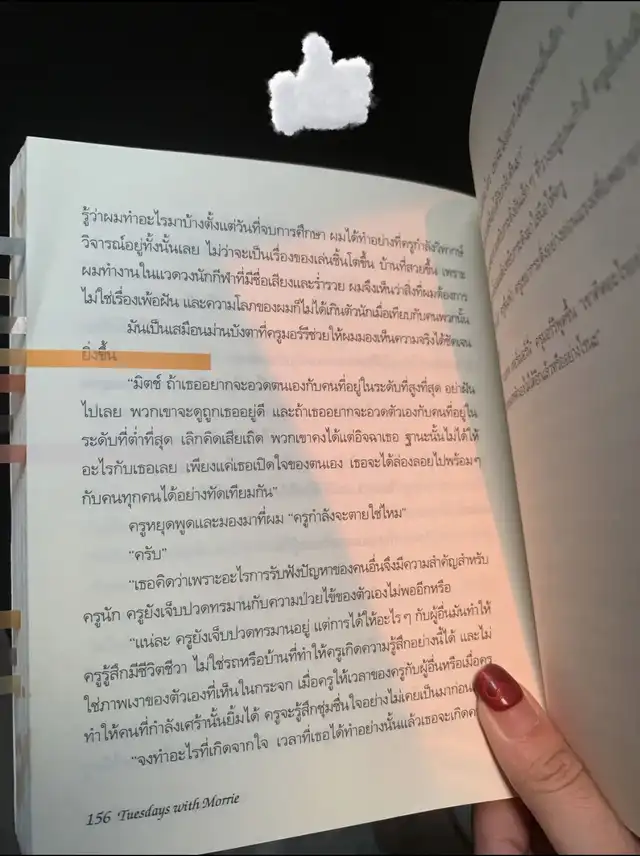 รู้ว่าผมทำอะไรมาบ้างตั้งแต่วันที่จบการศึกษา ผมได้ทำอย่างที่ครูกำลังวิพากษ์
วิจารณ์อยู่ทั้งนั้นเลย ไม่ว่าจะเป็นเรื่องของเล่นชิ้นโตขึ้น บ้านที่สวยขึ้น เพราะ
ผมทำงานในแวดวงนักกีฬาที่มีชื่อเสียงและร่ำรวย ผมจึงเห็นว่าสิ่งที่ผมต้องการ
ไม่ใช่เรื่องเพ้อฝัน และความโลภของผมก็ไม่ได้เกินตัวนักเมื่อเทียบกับคนพวกนั้น
มันเป็นเสมือนม่านบังตาที่ครูมอร์รีช่วยให้ผมมองเห็นความจริงได้ชัดเจน
ยิ่งขึ้น
“มิตช์ ถ้าเธออยากจะอวดตนเองกับคนที่อยู่ในระดับที่สูงที่สุด อย่าฝัน
ไปเลย พวกเขาจะดูถูกเธออยู่ดี และถ้าเธออยากจะอวดตัวเองกับคนที่อยู่ใน
ระดับที่ต่ำที่สุด เลิกคิดเสียเถิด พวกเขาคงได้แต่อิจฉาเธอ ฐานะนั้นไม่ได้ให้
อะไรกับเธอเลย เพียงแค่เธอเปิดใจของตนเอง เธอจะได้ล่องลอยไปพร้อมๆ
กับคนทุกคนได้อย่างทัดเทียมกัน”
ครูหยุดพูดและมองมาที่ผม “ครูกำลังจะตายใช่ไหม”
“ครับ”
“เธอคิดว่าเพราะอะไรการรับฟังปัญหาของคนอื่นจึงมีความสำคัญสำหรับ
ครูนัก ครูยังเจ็บปวดทรมานกับความป่วยไข้ของตัวเองไม่พออีกหรือ
“แน่ละ ครูยังเจ็บปวดทรมานอยู่ แต่การได้ให้อะไรๆ กับผู้อื่นมันทำให้
ครูรู้สึกมีชีวิตชีวา ไม่ใช่รถหรือบ้านที่ทำให้ครูเกิดความรู้สึกอย่างนี้ได้ และไม่
ใช่ภาพเงาของตัวเองที่เห็นในกระจก เมื่อครูให้เวลาของครูกับผู้อื่นหรือเมื่อครู
ทำให้คนที่กำลังเศร้านั้นยิ้มได้ ครูจะรู้สึกชุ่มชื่นใจอย่างไม่เคยเป็นมาก่อน
“จงทำอะไรที่เกิดจากใจ เวลาที่เธอได้ทำอย่างนั้นแล้วเธอจะเกิด
156 Tuesdays with Morrie